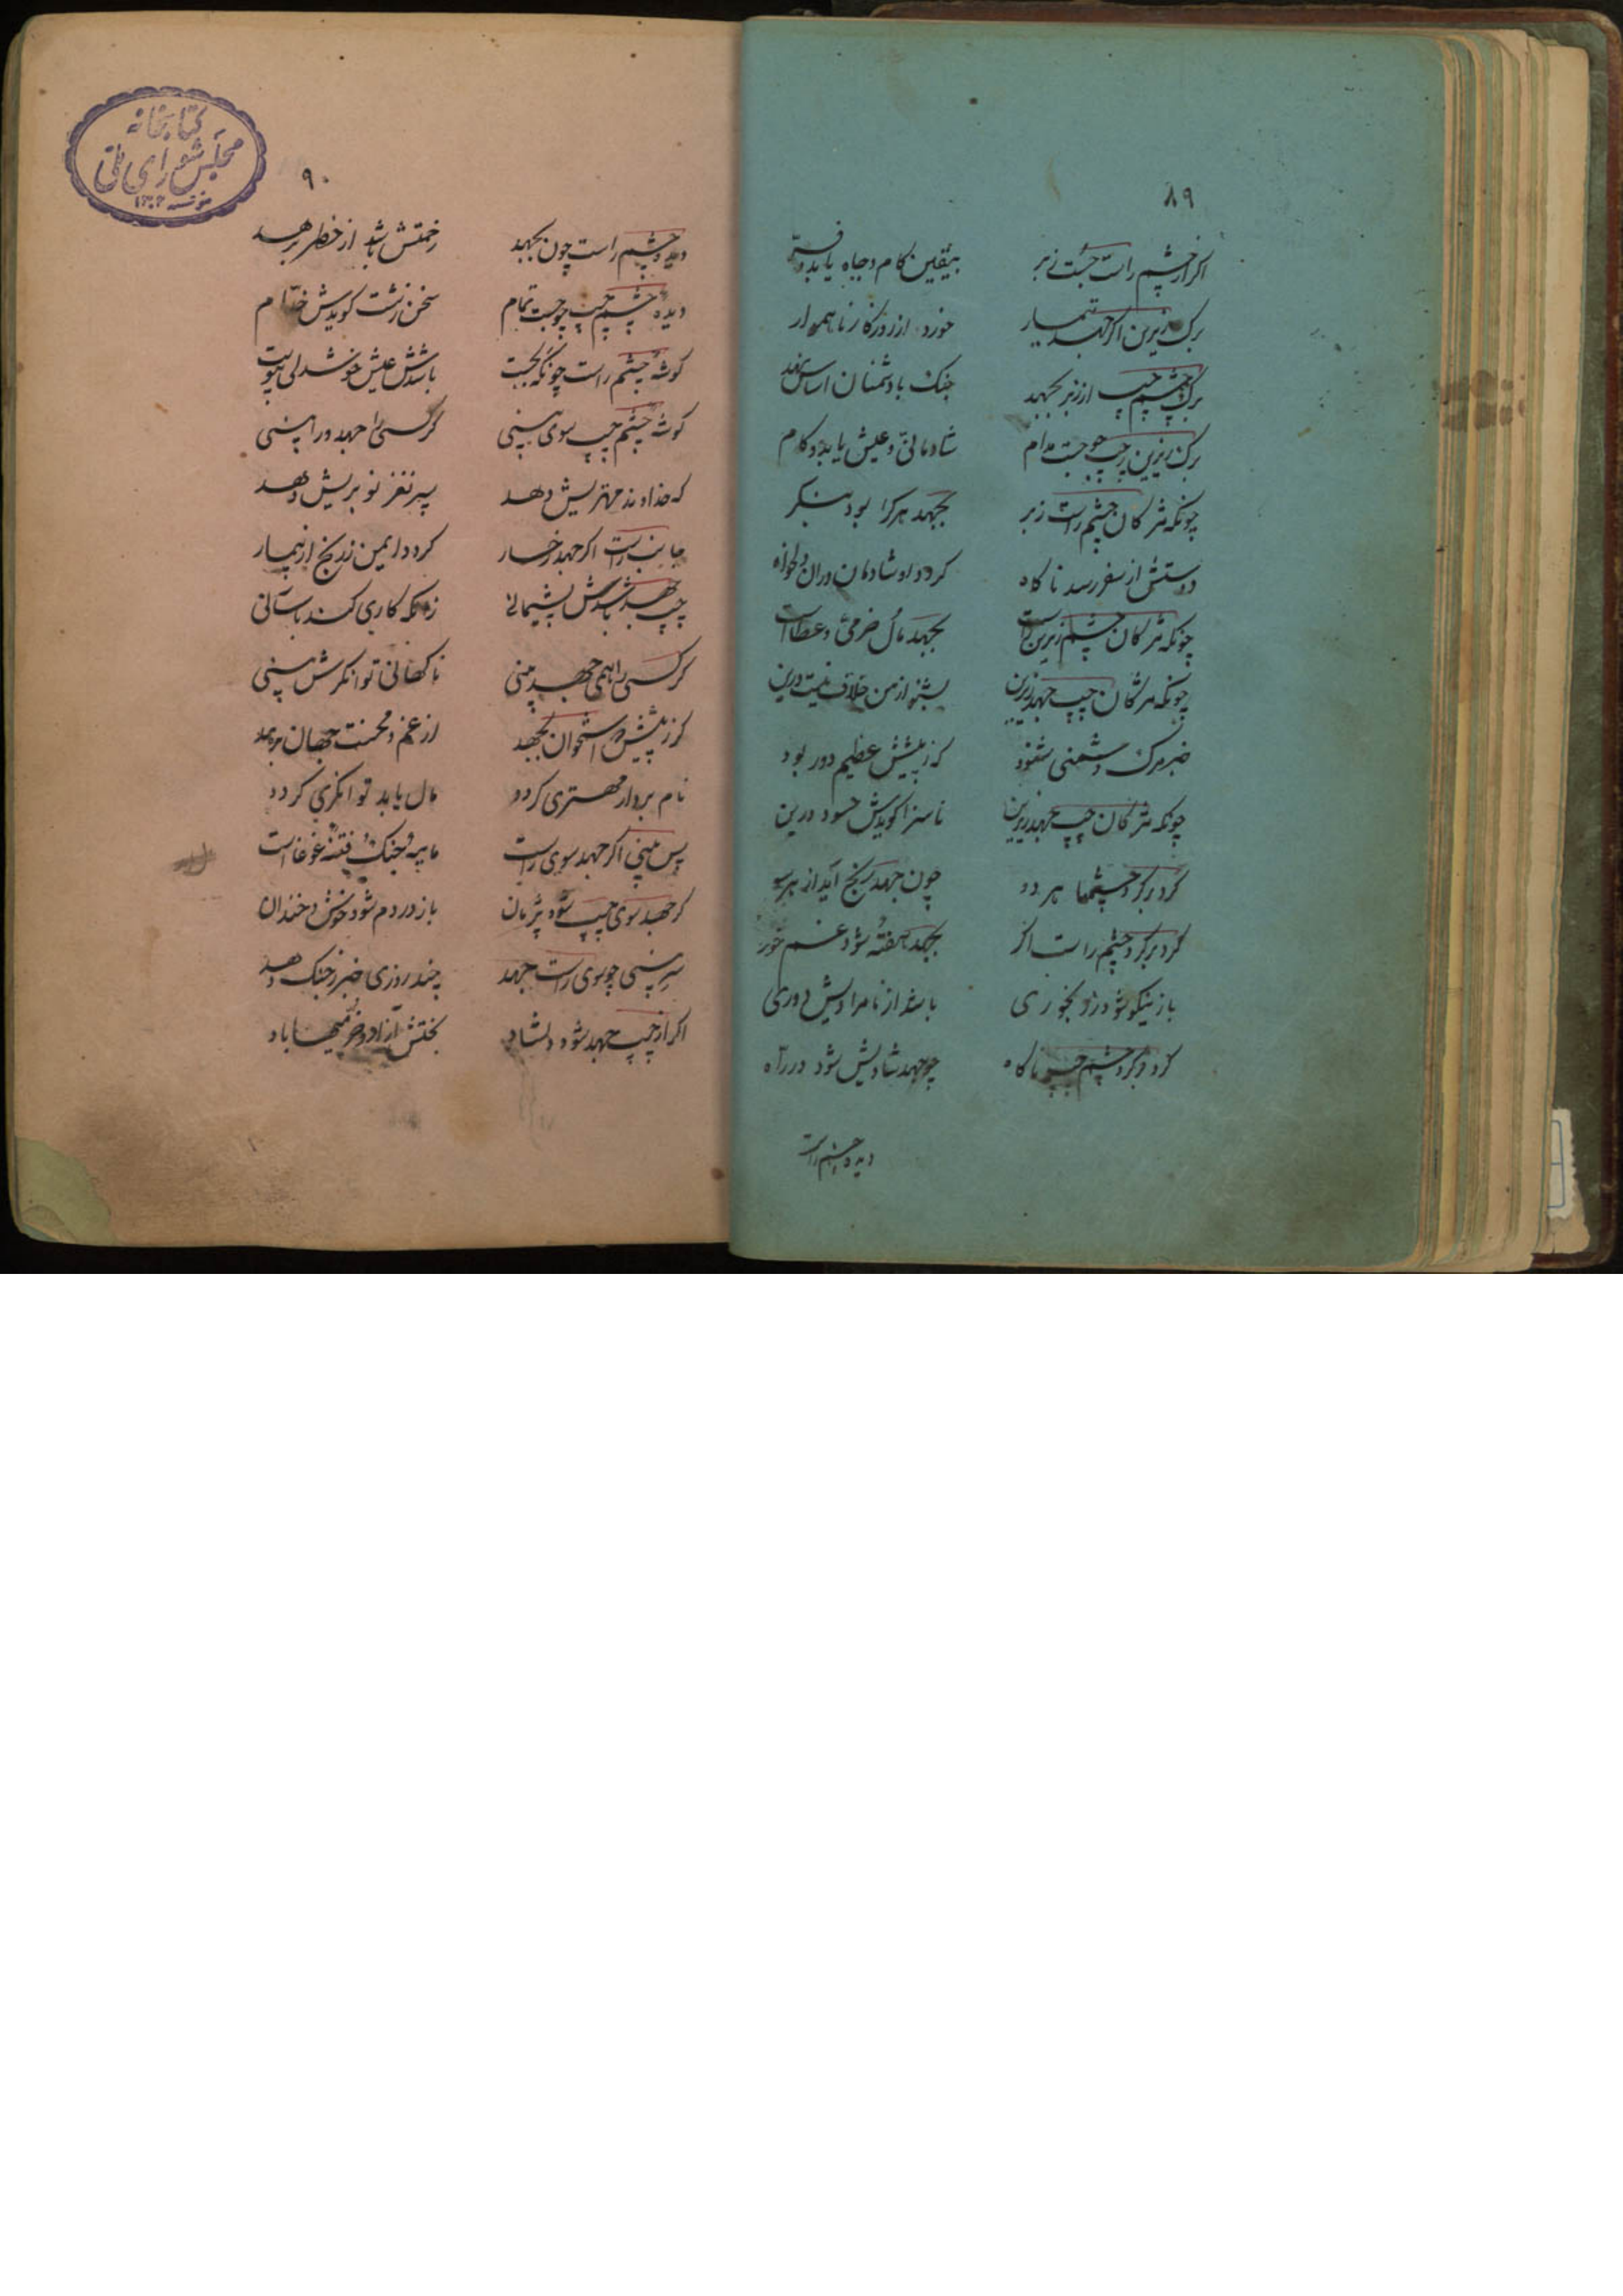 ۸۹
اکر از چشم راست جست زبر بیقین کام و جاه یابد و فر
برک زیرین اکر جهد تیمار خورد از روزکار ناهموار
برک چشم چپ ار زبر بجهد جنک با دشمنان اساس نهد
برک زیرین چپ چو جست مدام شادمانی و عیش یابد و کام
چونکه مژکان چشم راست زبر بجهد هرکرا بود بنکر
دوستش از سفر رسد ناکاه کردد او شادمان دران دلخواه
چونکه مژکان چشم زیرین راست بجهد مال خرمی و عطاست
چونکه مژکان چپ جهد زیرین بشنو از من خلاف نیست درین
خبر مرک دشمنی شنود کز پیش عظیم دور بود
چونکه مژکان چپ جهد زیرین ناسزا کویدش حسود درین
کرد بر کرد چشمها هر دو چون جهد رنج آید از هر سو
کرد بر کرد چشم راست اکر بجهد هفته شود غم خور
باز نیکو شود ز رنجوری باشد از نامرادیش دوری
کرد بر کرد چشم چپ ناکاه چو جهد شادیش شود در راه
دیده چشم راست
۹۰
دیده چشم راست چون بجهد زحمتش باشد از خطر برهد
دیده چشم چپ چو جست تمام سخن زشت کویدش خدام
کوشه چشم راست چونکه بجست باشدش عیش خوشدلی پیوست
کوشه چشم چپ سوی بینی کر کسی را جهد ورا بینی
که خداوند مهتریش دهد پسر نغز نو بریش دهد
جانب راست اکر جهد رخسار کردد ایمن ز رنج از تیمار
چپ جهد باشدش پشیمانی زانکه کاری کند باسانی
کر کسی را همی جهد بینی ناکهانی توانکرش بینی
کر ز بینیش استخوان بجهد از غم و محنت جهان برهد
نام بردار مهتری کردد مال یابد توانکری کردد
پس بینی اکر جهد سوی راست مایه جنک و فتنه غوغاست
کر جهد سوی چپ شود پژمان باز در دم شود خوش و خندان
سر بینی چو سوی راست جهد چند روزی خبر ز جنک دهد
اکر از چپ جهد شود دلشاد بختش آزاد و خرمیها باد
کتابخانه
مجلس شورای ملی
موسسه ۱۳۰۲